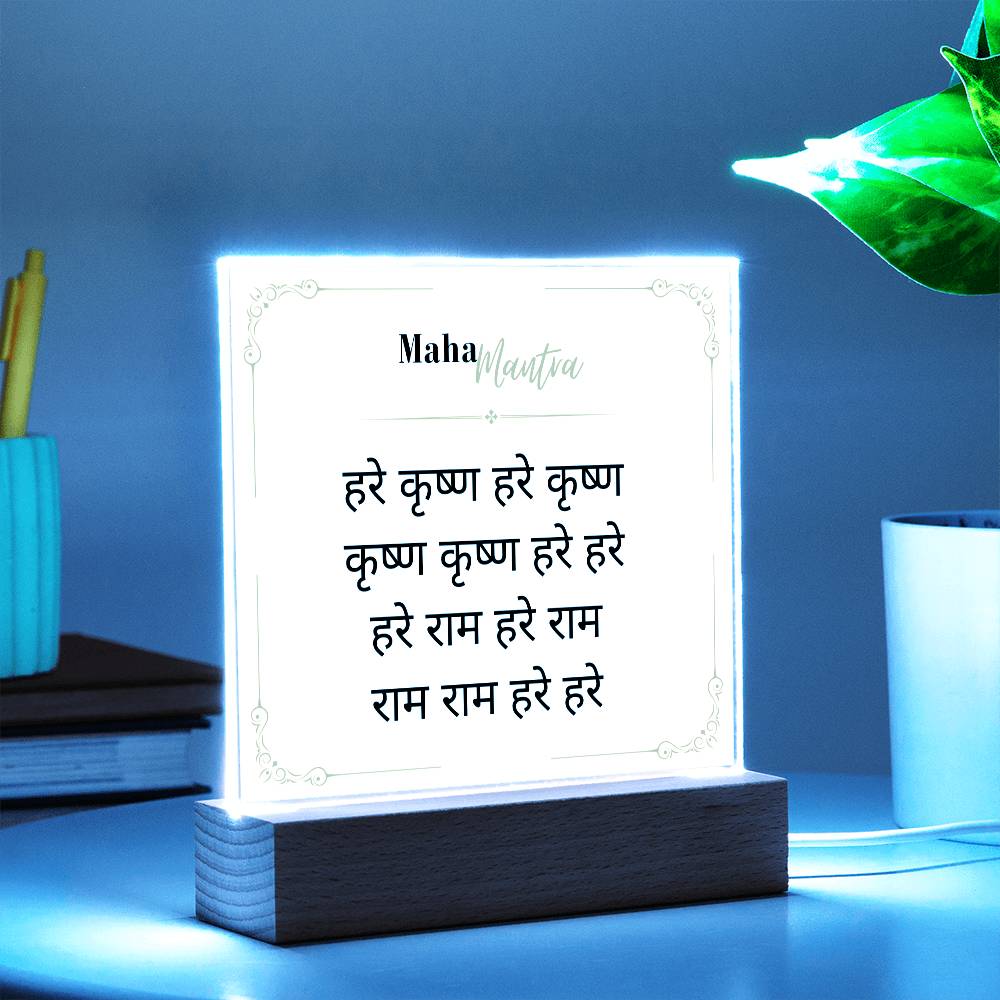 Maha Mantra
हरे कृष्ण हरे कृष्ण
कृष्ण कृष्ण हरे हरे
हरे राम हरे राम
राम राम हरे हरे